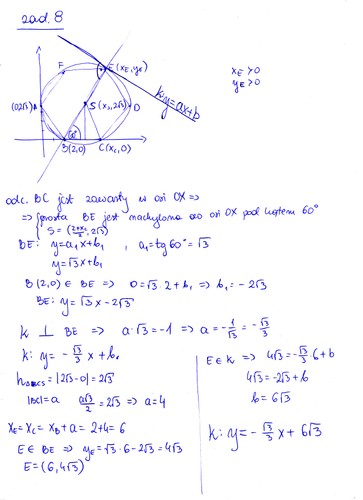 zad. 8
F
E (x_E, y_E)
x_E > 0
y_E > 0
k: y = ax+b
(0,2√3) A
S (x_S, 2√3)
D
60°
B(2,0)
C(x_C, 0)
odc. BC jest zawarty w osi OX ⇒
⇒ prosta BE jest nachylona do osi OX pod kątem 60°
S = (, 2√3)
BE: y = a₁x + b₁ , a₁ = tg 60° = √3
y = √3x + b₁
B(2,0) ∈ BE ⇒ 0 = √3·2 + b₁ ⇒ b₁ = -2√3
BE: y = √3x - 2√3
k ⊥ BE ⇒ a·√3 = -1 ⇒ a = -1/√3 = -√3/3
k: y = -√3/3 x + b
h = |2√3 - 0| = 2√3
|BC| = a a√3/2 = 2√3 ⇒ a = 4
x_E = x_C = x_B + a = 2+4 = 6
E ∈ BE ⇒ y_E = √3·6 - 2√3 = 4√3
E = (6, 4√3)
E ∈ k ⇒ 4√3 = -√3/3·6 + b
4√3 = -2√3 + b
b = 6√3
k: y = -√3/3 x + 6√3